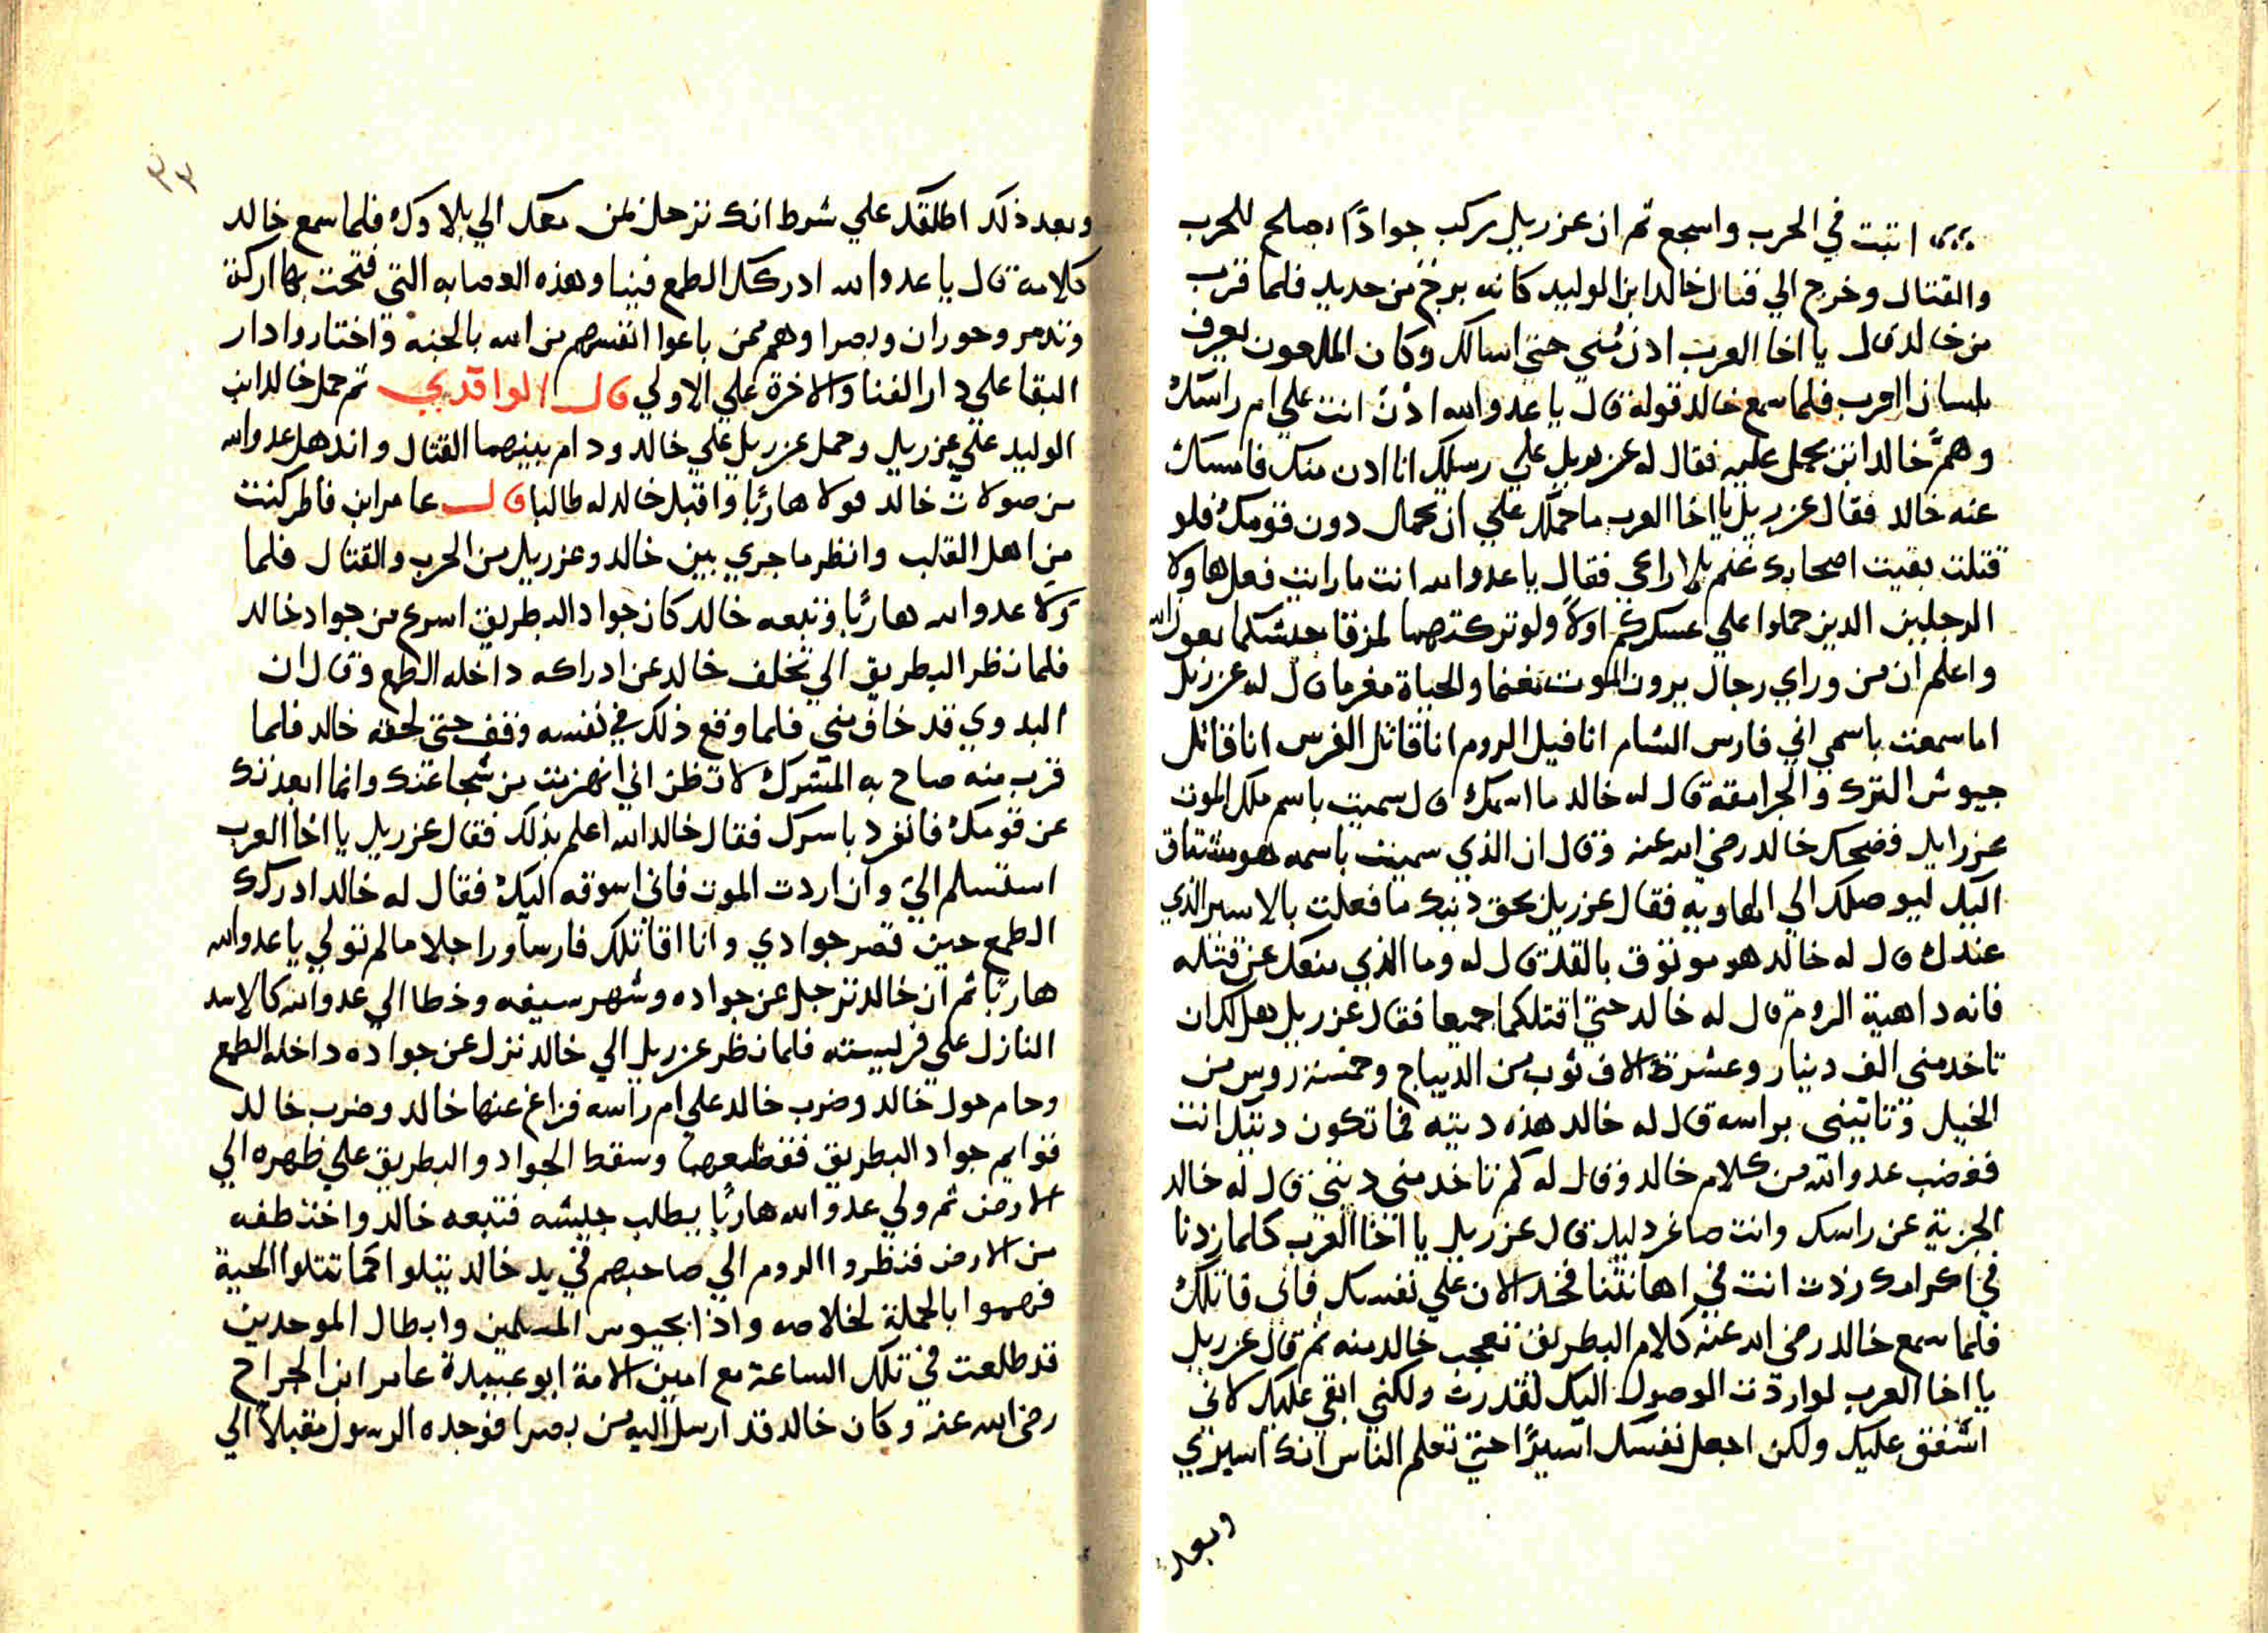 اتبت في الحرب واسجع ثم ان عزربيل ركب جوادًا يصلح للحرب
والقتال وخرج الي قتال خالد ابن الوليد كانه برج من حديد فلما قرب
من خالد قال يا اخا العرب ادن مني حتي اسالك وكان الملعون يعرف
بلسان العرب فلما سمع خالد قوله قال يا عدو الله ادن انت علي ام راسك
وهمّ خالد ان يحمل عليه فقال له عزربيل علي رسلك انا ادن منك فامسك
عنه خالد فقال عزربيل يا اخا العرب ما حملك علي ان تحمل دون قومك فلو
قتلت بقيت اصحابك غنم بلا راعي فقال يا عدو الله انت ما رايت فعل هاولا
الرجلين الدين حملوا علي عسكركم اولًا ولو تركتهما لمزقا جيشكما بعون الله
واعلم ان من وراي رجال يرون الموت مغنما والحياة مغرما قال له عزربيل
اما سمعت باسمي اني فارس الشام انا فيل الروم انا قاتل الفرس انا قاتل
جيوش الترك والجرامقه قال له خالد ما اسمك قال سميت باسم ملك الموت
عزرايل فضحك خالد رضي الله عنه وقال ان الذي سميت باسمه هو مشتاق
اليك ليوصلك الي الهاويه فقال عزربيل بحق دينك ما فعلت بالاسير الذي
عندك قال له خالد هو موثوق بالقد قال له وما الذي منعك عن قتله
فانه داهية الروم قال له خالد حتي اقتلكما جميعا فقال عزربيل هل لك ان
تاخد مني الف دينار وعشرة الاف ثوب من الديباج وخمسة روس من
الخيل وتاتيني براسه قال له خالد هذه ديته فما تكون ديتك انت
فغضب عدو الله من كلام خالد وقال له كم تاخد مني ديتي قال له خالد
الجزية عن راسك وانت صاغر دليل قال عزربيل يا اخا العرب كلما زدنا
في اكرامك زدت انت في اهانتنا فخد الان علي نفسك فاني قاتلك
فلما سمع خالد رضي الله عنه كلام البطريق تعجب خالد منه ثم قال عزربيل
يا اخا العرب لو اردت الوصول اليك لقدرت ولكني ابقي عليك لاني
اشفق عليك ولكن اجعل نفسك اسيرًا حتي تعلم الناس انك اسيري
وبعد
٣٣
وبعد ذلك اطلقك علي شرط انك ترحل لمن معك الي بلادك فلما سمع خالد
كلامه قال يا عدو الله ادركك الطمع فينا وهذه العصابه التي فتحت بها اركة
وتدمر وحوران وبصرا وهم ممن باعوا انفسهم من الله بالجنه واختاروا دار
البقا علي دار الفنا والاخرة علي الاولي قال الواقدي ثم حمل خالد ابن
الوليد علي عزربيل وحمل عزربيل علي خالد ودام بينهما القتال واندهل عدو الله
من صولات خالد فولا هاربًا واقبل خالد له طالبا قال عامر ابن فاطر كنت
من اهل القلب وانظر ما جري بين خالد وعزربيل من الحرب والقتال فلما
ولا عدو الله هاربًا وتبعه خالد كان جواد البطريق اسرع من جواد خالد
فلما نظر البطريق الي تخلف خالد عن ادراكه داخله الطمع وقال ان
البدوي قد خاف مني فلما وقع ذلك في نفسه وقف حتي لحقه خالد فلما
قرب منه صاح به المشرك لا تظن اني انهزمت من شجاعتك وانما ابعدتك
عن قومك فانفرد باسرك فقال خالد الله اعلم بذلك فقال عزربيل يا اخا العرب
استسلم اليّ وان اردت الموت فانا اسوقه اليك فقال له خالد ادركك
الطمع حين قصر جوادي وانا اقاتلك فارسا وراجلا ما لم تولي يا عدو الله
هاربًا ثم ان خالد ترجل عن جواده وشهر سيفه وخطا الي عدو الله كالاسد
النازل علي فريسته فلما نظر عزربيل الي خالد نزل عن جواده داخله الطمع
وحام حول خالد وضرب خالد علي ام راسه فزاغ عنها خالد وضرب خالد
قوايم جواد البطريق فقطعها وسقط الجواد والبطريق علي ظهره الي
الارض ثم ولي عدو الله هاربًا يطلب جيشه فتبعه خالد واختطفه
من الارض فنظروا الروم الي صاحبهم في يد خالد يتلوا كما تتلوا الحية
فهموا بالحملة لخلاصه واذا بجيوس المسلمين وابطال الموحدين
قد طلعت في تلك الساعة مع امين الامة ابو عبيدة عامر ابن الجراح
رضي الله عنه وكان خالد قد ارسل اليه من بصرا فوجده الرسول مقبلًا الي